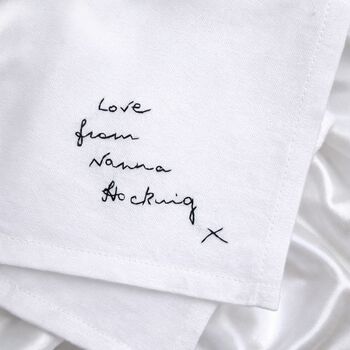 Love
from
Nanna
Hocking
X